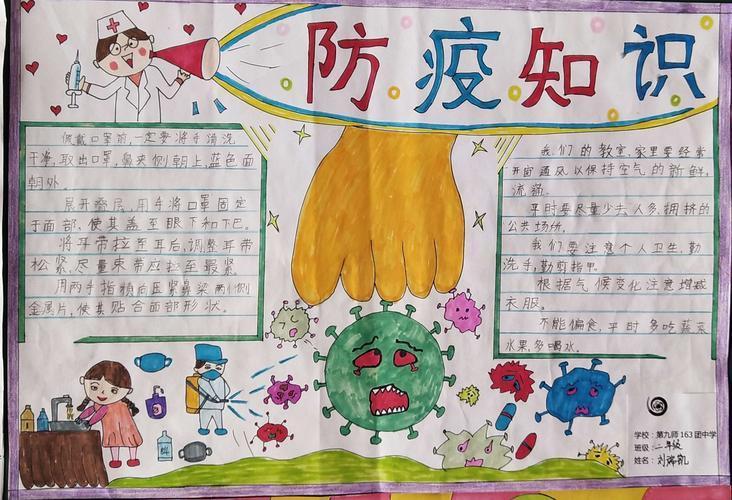 防疫知识
佩戴口罩前,一定要将手清洗
干净,取出口罩,鼻夹侧朝上,蓝色面
朝外。
展开叠层,用手将口罩固定
于面部,使其盖至眼下和下巴。
将耳带拉至耳后,调整耳带
松紧,尽量束带应拉至最紧。
用两手指稍后压紧鼻梁两侧侧
金属片,使其贴合面部形状。
我们的教室,家里要经常
开窗通风以保持空气的新鲜,
流畅。
平时要尽量少去人多,拥挤的
公共场所。
我们要注意个人卫生,勤
洗手,勤剪指甲。
根据气候变化注意增减
衣服。
不能偏食,平时多吃蔬菜
水果,多喝水。
学校:第九师163团中学
班级:二年级
姓名:刘瑞凯